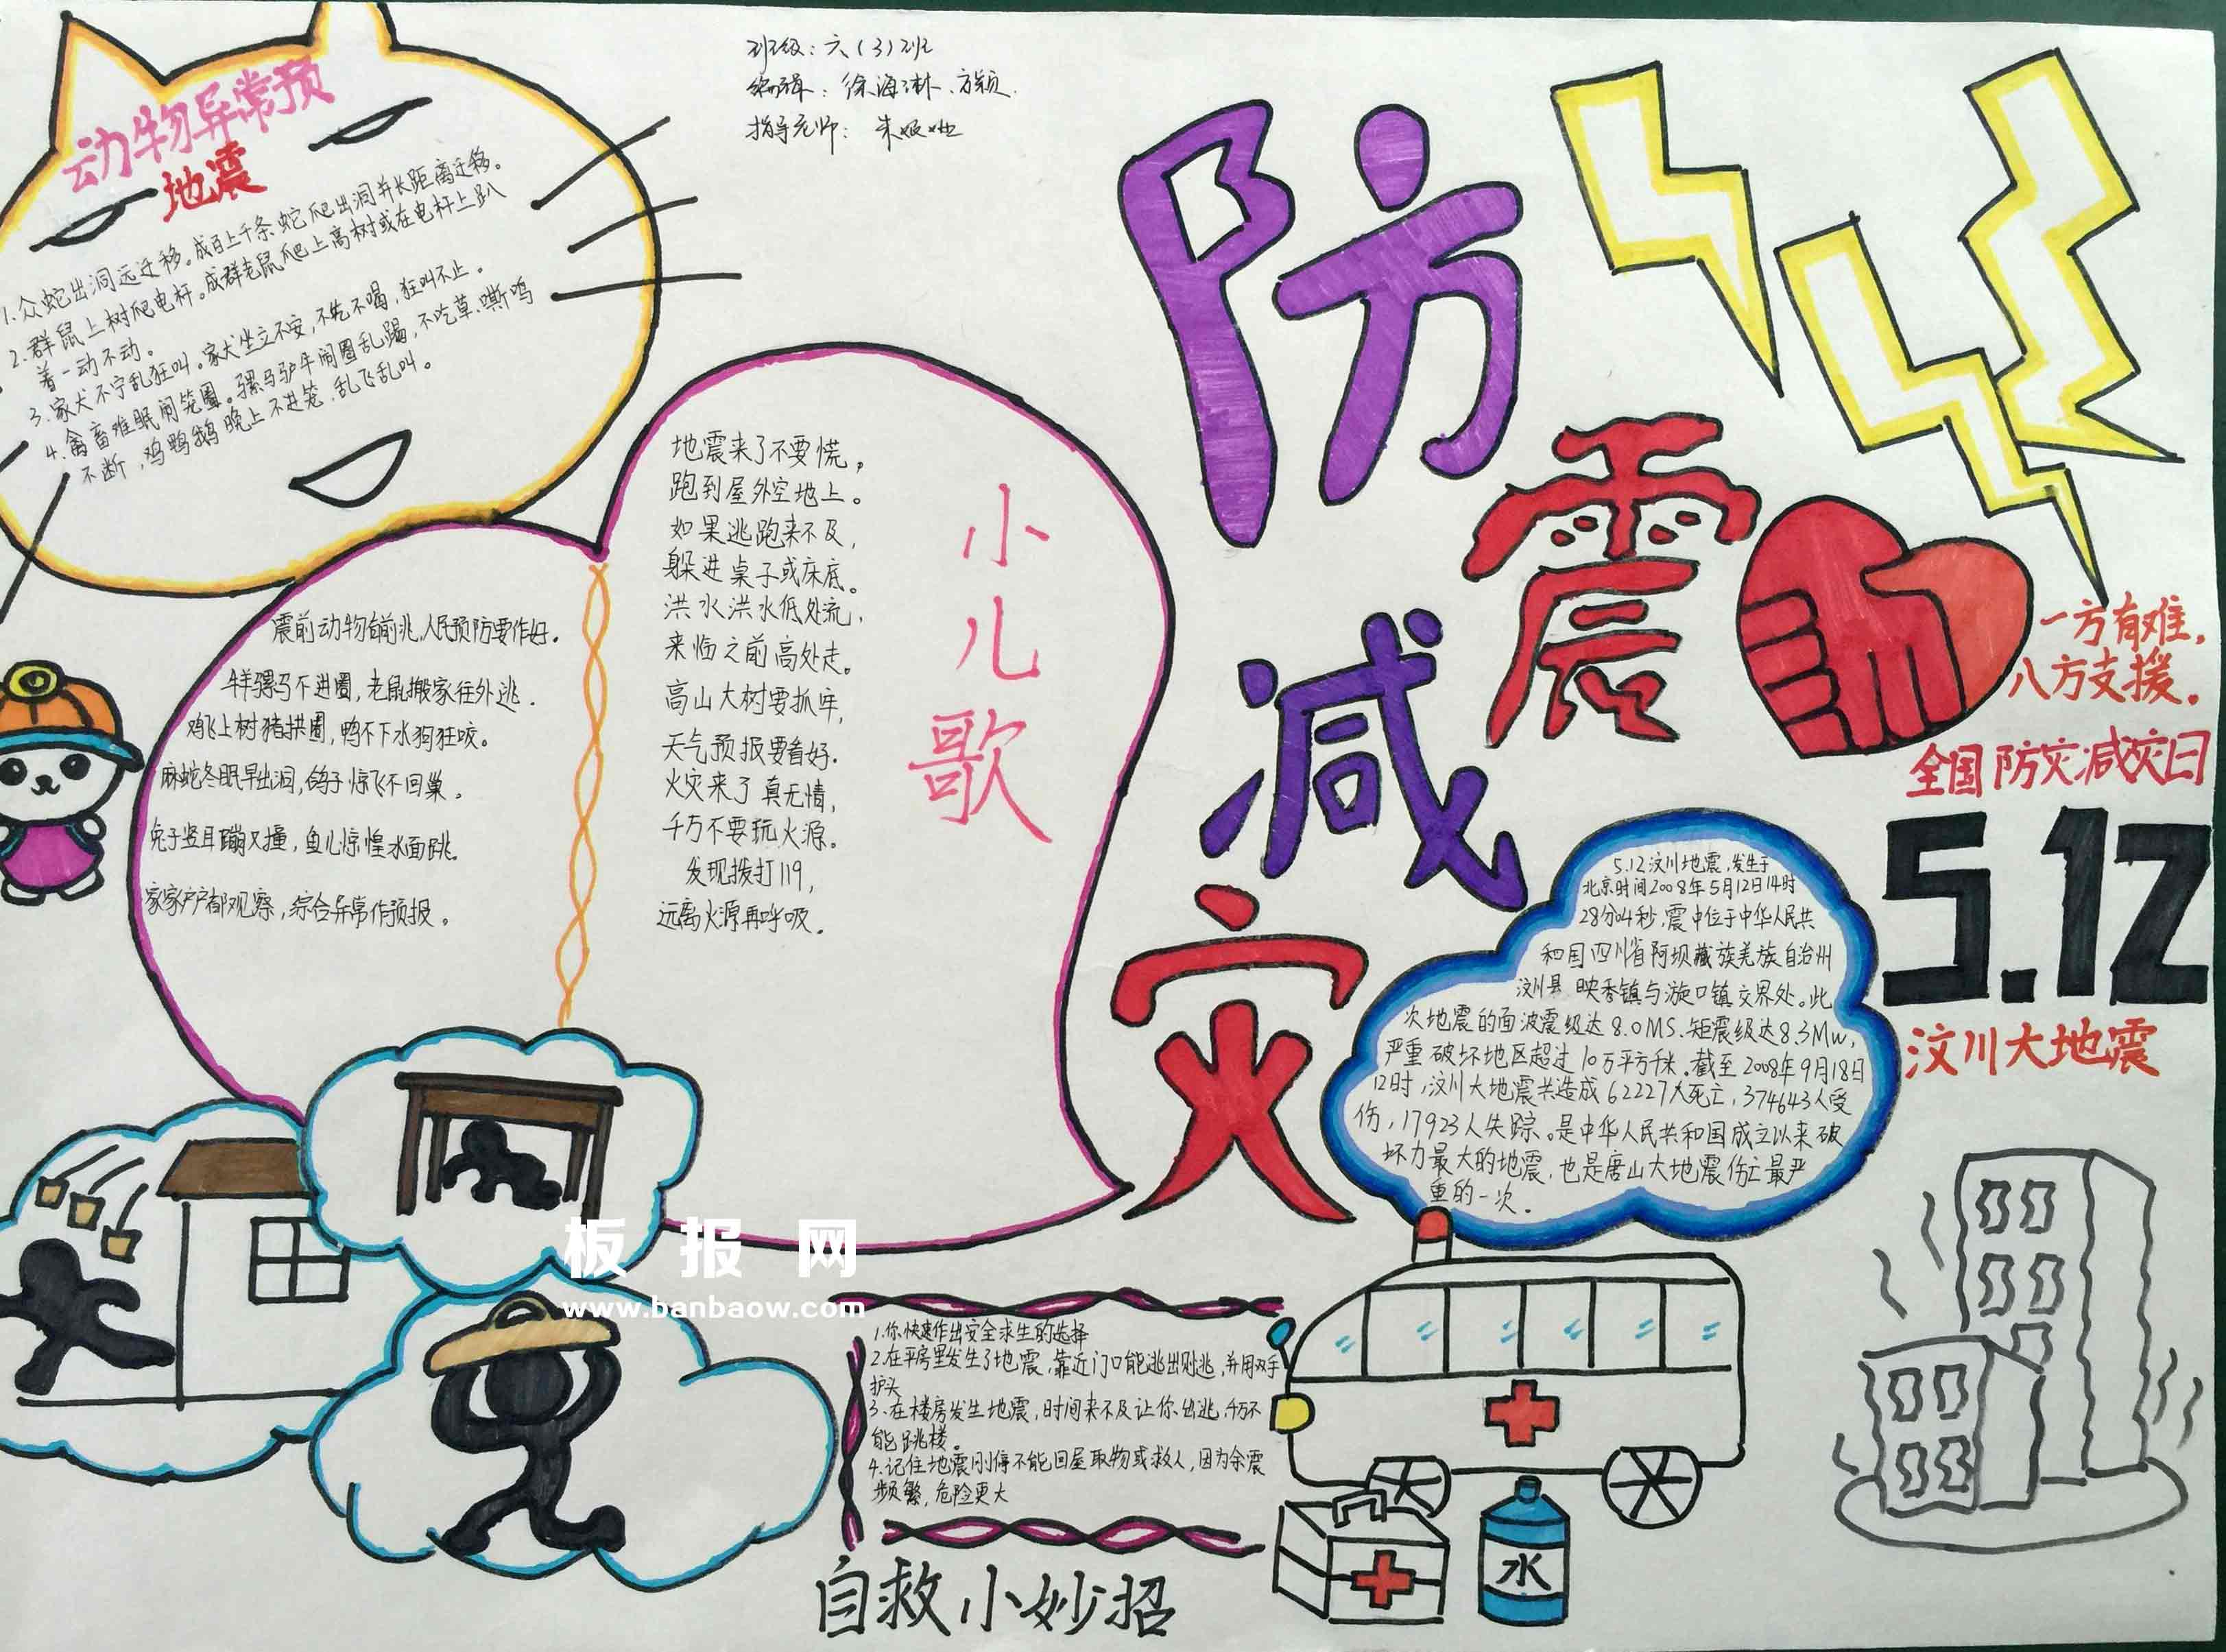 班级：六（3）班
编辑：徐海淋、方颖.
指导老师：
动物异常预
地震
1.众蛇出洞远迁移。成百上千条蛇爬出洞并长距离迁移。
2.群鼠上树爬电杆。成群老鼠爬上高树或在电杆上趴
着一动不动。
3.家犬不宁乱狂叫。家犬坐立不安，不吃不喝，狂叫不止。
4.禽畜难眠闹笼圈。骡马驴牛闹圈乱踢，不吃草、嘶鸣
不断，鸡鸭鹅晚上不进笼、乱飞乱叫。
防震
减灾
一方有难，
八方支援。
全国防灾减灾日
5.12
汶川大地震
小儿歌
地震来了不要慌，
跑到屋外空地上。
如果逃跑来不及，
躲进桌子或床底。
洪水洪水低处流，
来临之前高处走。
高山大树要抓牢，
天气预报要看好.
火灾来了真无情，
千万不要玩火源。
发现拨打119，
远离火源再呼吸.
震前动物有前兆，人民预防要作好.
牛羊骡马不进圈，老鼠搬家往外逃.
鸡飞上树猪拱圈，鸭不下水狗狂咬。
麻蛇冬眠早出洞，鸽子惊飞不回巢.
兔子竖耳蹦又撞，鱼儿惊惶水面跳.
家家户户都观察，综合异常作预报.
5.12汶川地震，发生于
北京时间2008年5月12日14时
28分04秒，震中位于中华人民共
和国四川省阿坝藏族羌族自治州
汶川县映秀镇与漩口镇交界处。此
次地震的面波震级达8.0MS、矩震级达8.3Mw，
严重破坏地区超过10万平方千米。截至2008年9月18日
12时，汶川大地震共造成62227人死亡，374643人受
伤，17923人失踪。是中华人民共和国成立以来破
坏力最大的地震，也是唐山大地震伤亡最严
重的一次.
板报网
www.banbaow.com
1.你快速作出安全求生的选择
2.在平房里发生了地震，靠近门口能逃出则逃，并用双手
护头
3.在楼房发生地震，时间来不及让你出逃，千万不
能跳楼。
4.记住地震刚停不能回屋取物或救人，因为余震
频繁，危险更大
自救小妙招
水